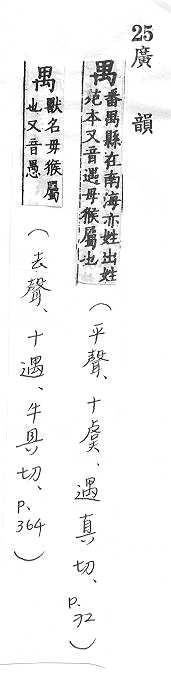 25 廣韻
禺 番禺縣在南海亦姓出姓
苑本又音遇母猴屬也
（平聲、十虞、遇真切、p.72）
禺 獸名母猴屬
也又音愚
（去聲、十遇、牛具切、p.364）